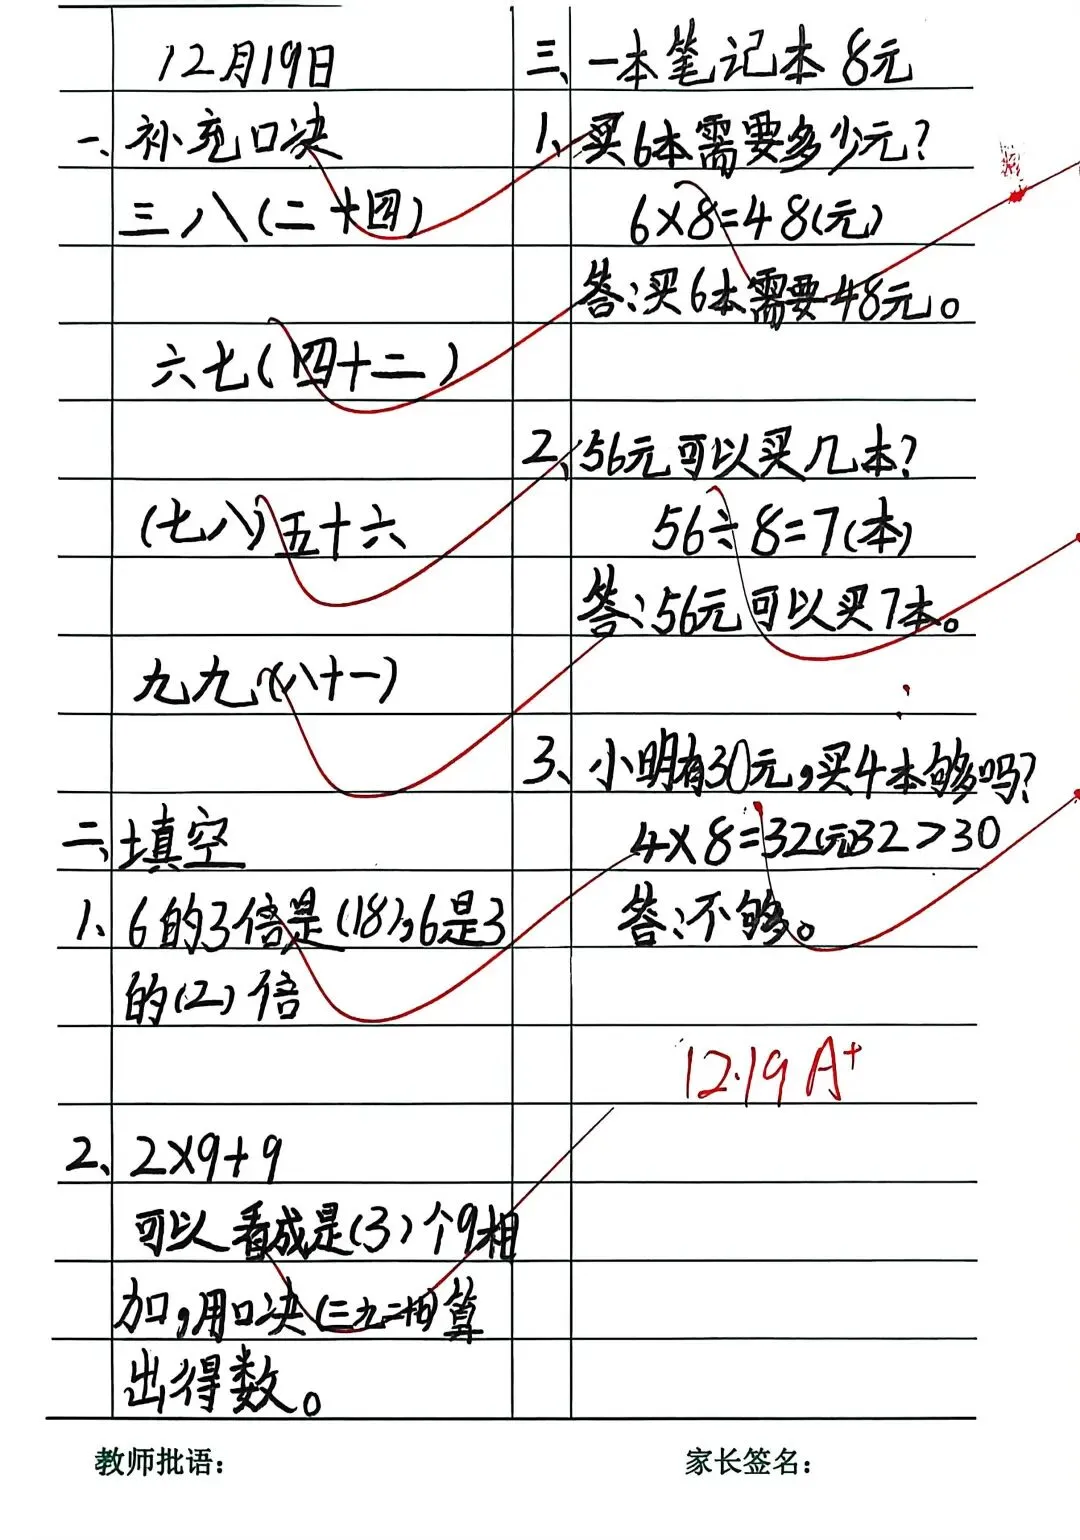 12月19日
一、补充口决
三八(二十四)
六七(四十二)
(七八)五十六
九九(八十一)
二、填空
1、6的3倍是(18),6是3
的(2)倍
2、2×9+9
可以看成是(3)个9相
加,用口决(三九二十七)算
出得数。
三、一本笔记本8元
1、买6本需要多少元?
6×8=48(元)
答:买6本需要48元。
2、56元可以买几本?
56÷8=7(本)
答:56元可以买7本。
3、小明有30元,买4本够吗?
4×8=32(元)32>30
答:不够。
12.19 A+
教师批语:
家长签名: